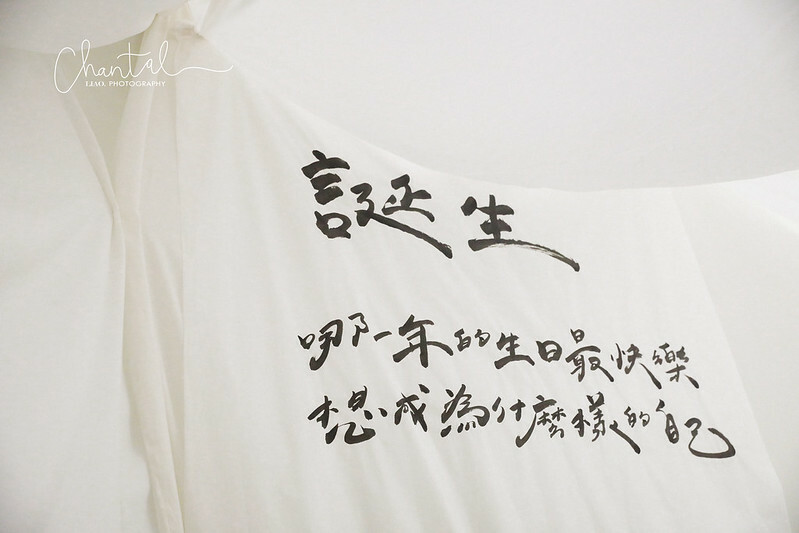 Chantal
LIAO. PHOTOGRAPHY
誕生
哪一年的生日最快樂
想成為什麼樣的自己